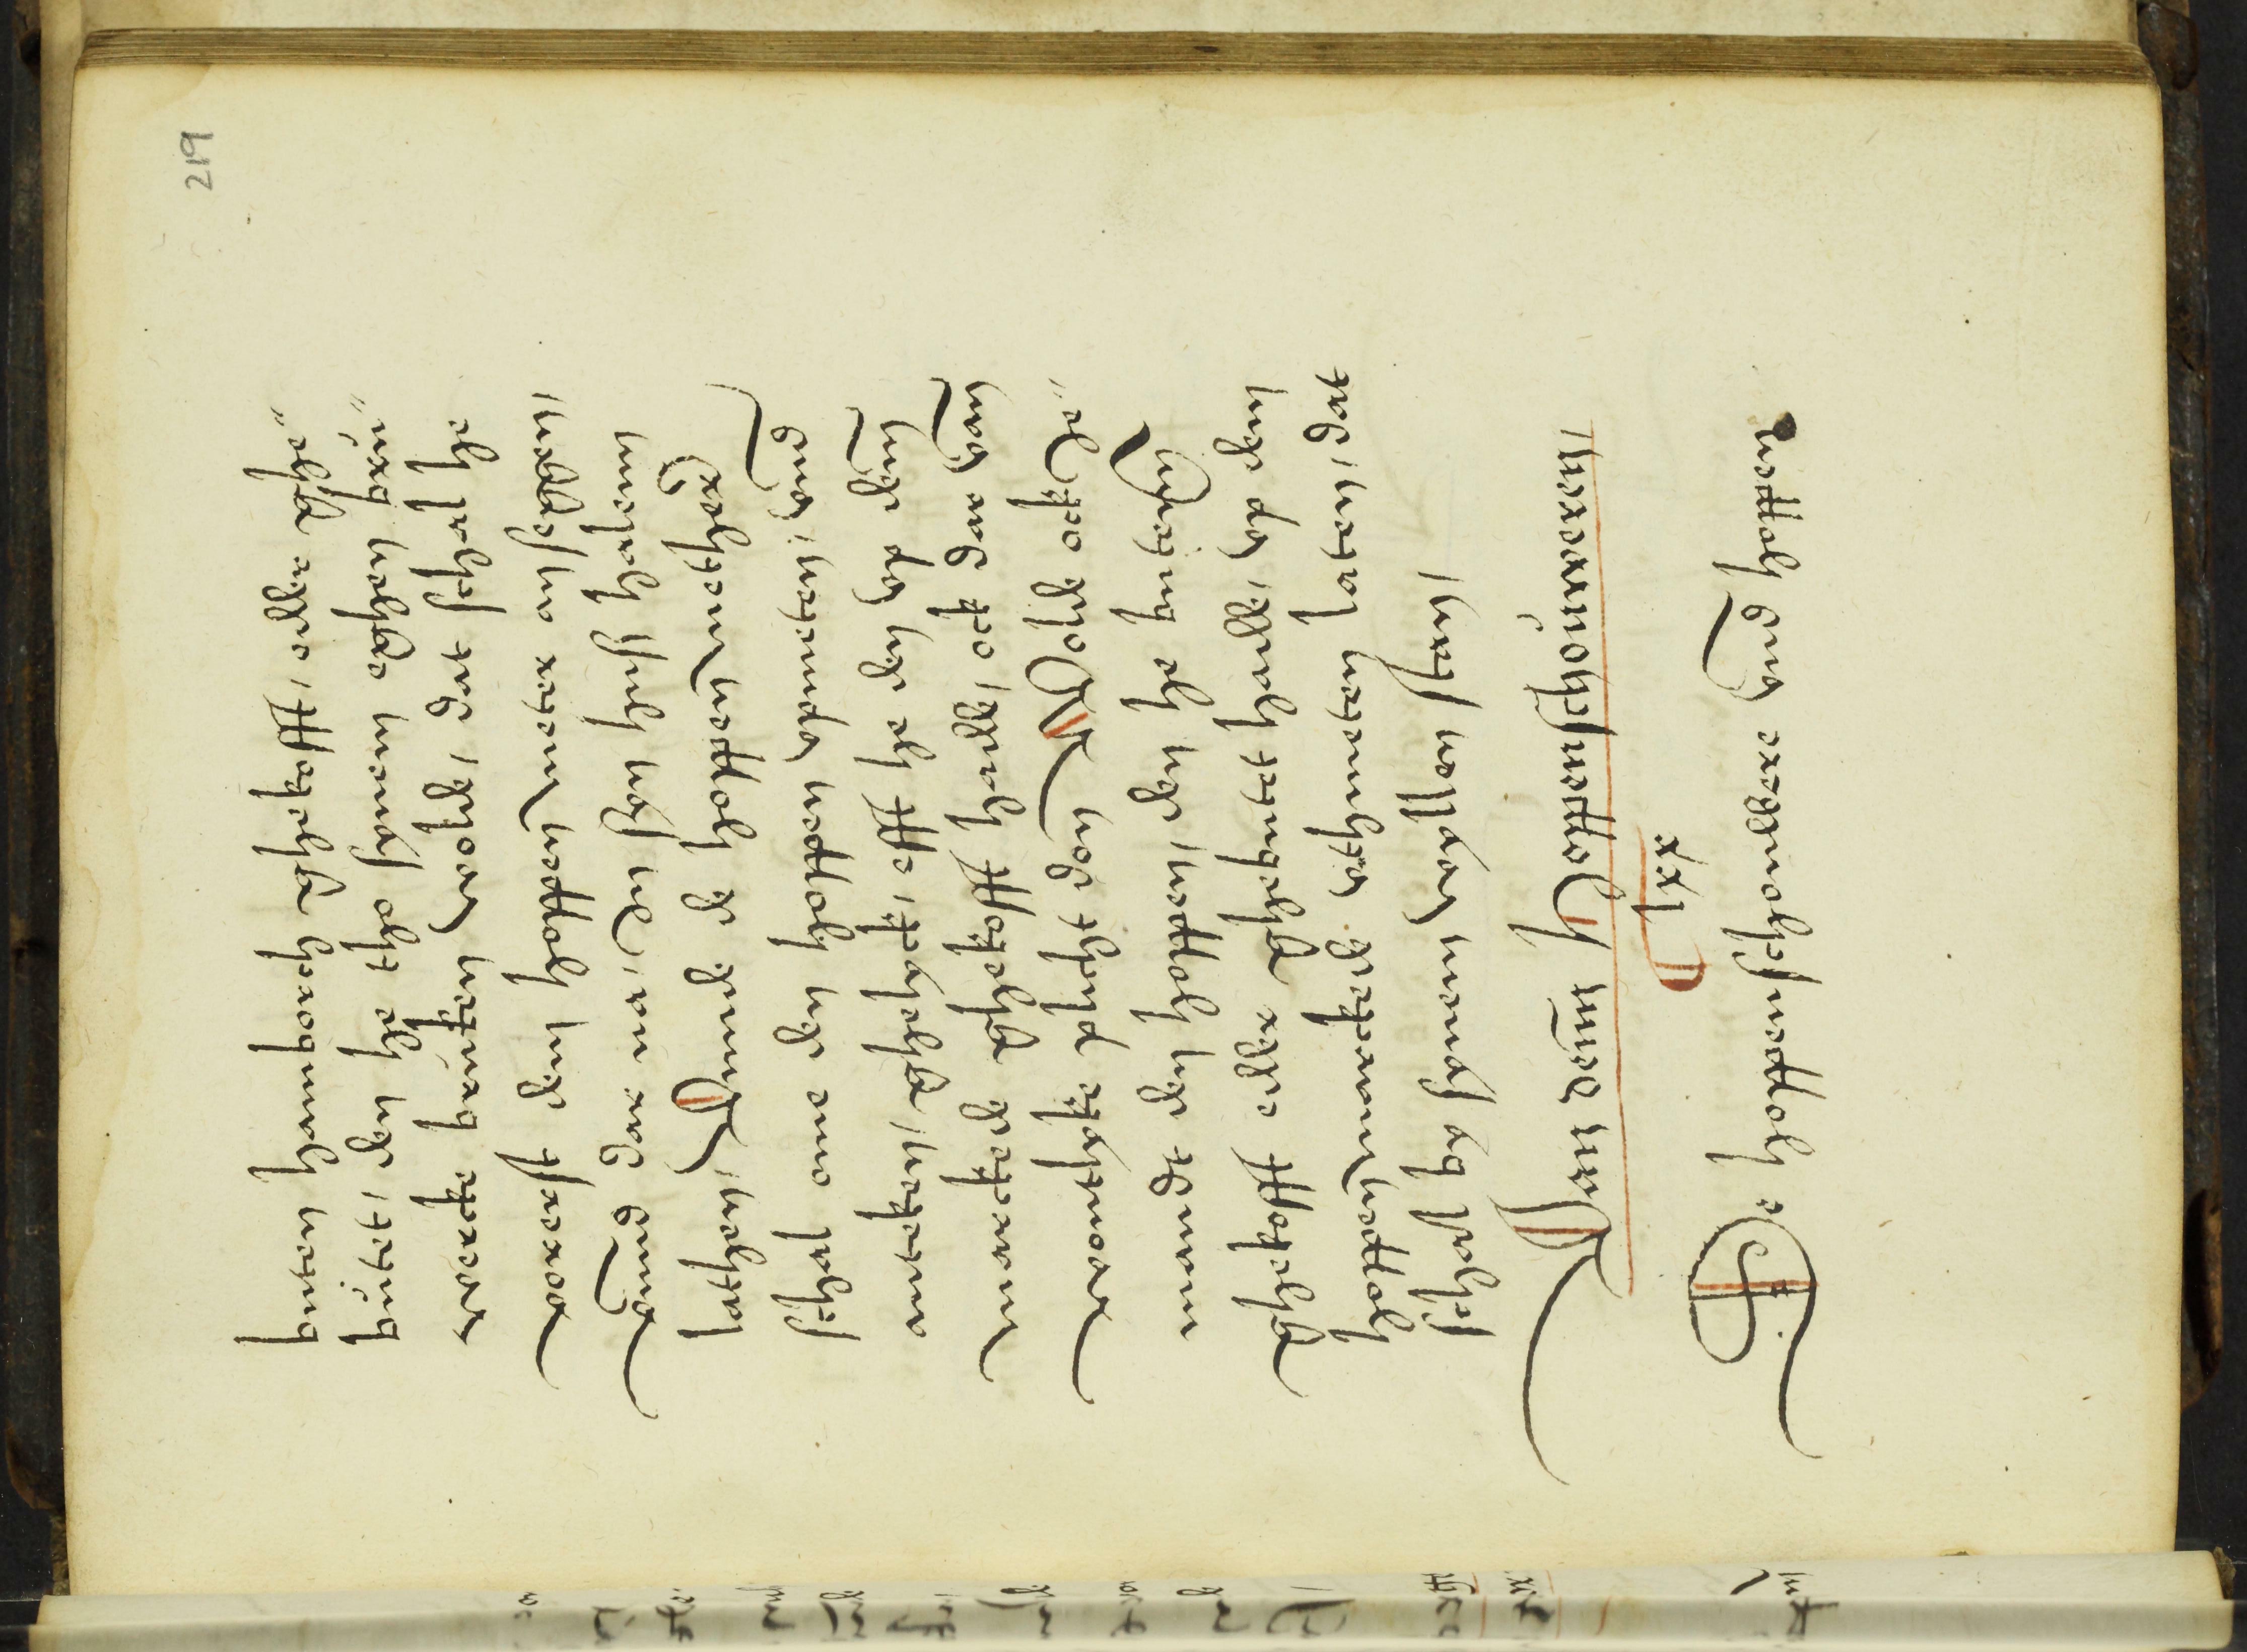 219
buten hamborch ghekofft, edder ghe-
bütet, den he tho synem eghen brü-
wercke bruken wolde, dat schal he
vorerst den hoppen meter ansegghen,
vnd dar na, en vth syn huß halenn
lathen, Wenne de hoppen mether
schal ome den hoppen vpmeten, vnd
anteken, ghelyck, efft he den vp dem
marckede ghekofft hedde, ock dar van
vorntlyke plicht don Wolde ock ye-
mandt den hoppen, den he buten
ghekofft edder ghebutet hedde, vp dem
hoppen marckede vthmeten laten, dat
schal by synem willen stan,
Van deme Hoppenschouwerenn
lxx
De hoppenschouwere vnd hoppen